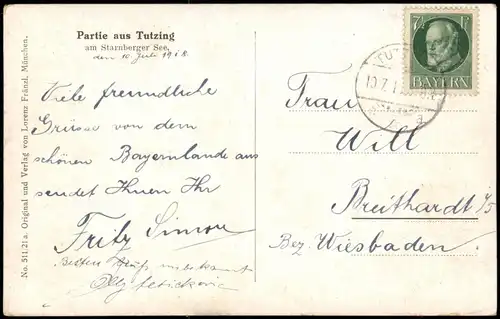 Partie aus Tutzing
am Starnberger See.
den 10 Juli 1918.
Viele freundliche
Grüsse von dem
schönen Bayernlande aus
sendet Ihnen Ihr
Fritz Simon
Besten Gruß unbekannt
No. 511/21 a. Original und Verlag von Lorenz Fränzl, München.
7½ Pf.
BAYERN
10.7.1
Frau
Will
Breithardt i/T
Bez. Wiesbaden